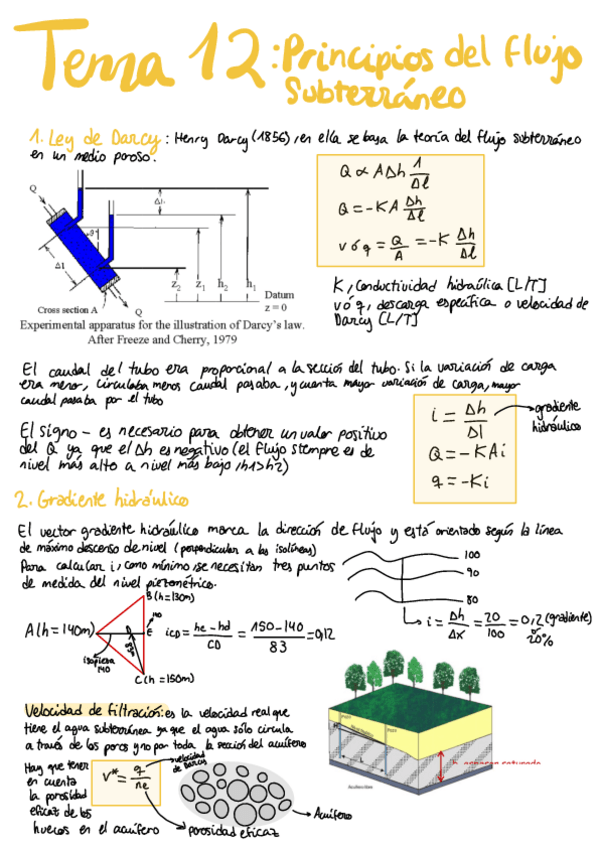 Tema 12: Principios del flujo
Subterráneo
1. Ley de Darcy: Henry Darcy (1856), en ella se basa la teoría del flujo subterráneo
en un medio poroso.
Q ∝ AΔh 1/Δl
Q = -KA Δh/Δl
v ó q = Q/A = -K Δh/Δl
Q
Δl
θ
z₂ z₁ h₂ h₁
Datum
z = 0
Cross section A
Q
Experimental apparatus for the illustration of Darcy's law.
After Freeze and Cherry, 1979
K, Conductividad hidraúlica [L/T]
v ó q, descarga específica o velocidad de
Darcy [L/T]
El caudal del tubo era proporcional a la sección del tubo. Si la variación de carga
era menor, circulaba menos caudal pasaba, y cuanta mayor variación de carga, mayor
caudal pasaba por el tubo
El signo - es necesario para obtener un valor positivo
del Q ya que el Δh es negativo (el flujo siempre es de
nivel más alto a nivel más bajo, h1>h2)
i = Δh/Δl
gradiente
hidráulico
Q = -KAi
q = -Ki
2. Gradiente hidráulico
El vector gradiente hidráulico marca la dirección de flujo y está orientado según la línea
de máximo descenso de nivel (perpendicular a las isolíneas)
Para calcular i, como mínimo, se necesitan tres puntos
de medida del nivel piezométrico.
100
90
80
i = Δh/Δx = 20/100 = 0,2 (gradiente)
20%
B (h=130m)
140
A (h=140m)
E
83m
isopieza
140
C (h=150m)
iCD = hc - hd / CD = 150-140 / 83 = 0,12
Velocidad de filtración: es la velocidad real que
tiene el agua subterránea ya que el agua sólo circula
a través de los poros y no por toda la sección del acuífero
Hay que tener
en cuenta
la porosidad
eficaz de los
huecos en el acuífero
v* = q/ne
velocidad
de Darcy
porosidad eficaz
Acuífero
L
Acuífero libre